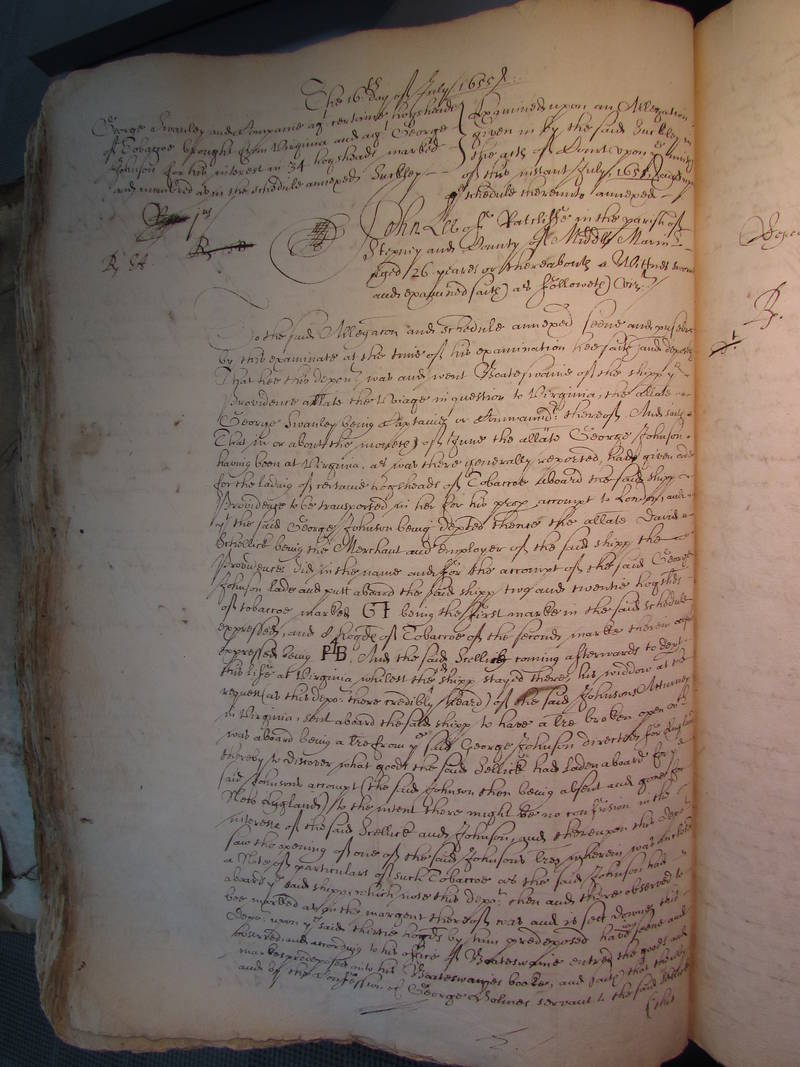 The 16th day of July 1655
George Swanley and Companie agt certaine hogsheads
of Tobaccoe brought from Virginia and agt George
Johnson for his interest in 34 hogsheads marked
and numbred as in the schedule annexed Suckley
Examined upon an Allegation
given in by the said Suckley in
the acts of Court upon
of this instant July 1655
schedule thereunto annexed
Rp jus
Rp EA
John Lee of Ratcliffe in the parish of
Stepney and County of Middx Marriner
aged 26 yeares or thereabouts a Wittnes sworne
and examined saith as followeth vizt
To the said Allegation and schedule annexed seene and perused
by this examinate at the time of his examination hee saith and deposeth
That hee this depont was and went Boateswaine of the shipp ye
Providence att late the Voiage in question to Virginia, the allate
George Swanley being Captaine or Commander thereof And saith
That in or about the moneth of June the allate George Johnson
having been at Virginia, as was there generally reported, had given order
for the lading of certaine hogsheads of Tobaccoe aboard the said shipp
Providence to be transported in her for his proper accompt to London, and
ye the said George Johnson being depted thence the allate David
Sellick being the Merchant and employer of the said shipp the
Providence did in the name and for the accompt of the said George
Johnson lade and putt aboard the said shipp two and twentie hogsheds
of tobaccoe marked GI being the first marke in the said schedule
expressed, and 8 hogds of Tobaccoe of the second marke therein also
expressed being P4B. And the said Sellick coming afterwards to dept
this life at Virginia whilest the shipp stayd there, his widdow at the
request (as this depot there credibly heard) of the said Johnsons Attorney
in Virginia, sent aboard the said shipp to have a lre broken open which
was aboard being a lre from ye said George Johnson directed for England
thereby to discover what goods the said Sellick had laden aboard for ye
said Johnsons accompt (the said Johnson then being absent and gone for
New England) to the intent there might be no confusion in the
interest of the said Sellick and Johnson, and thereupon this depot
saw the opening of one of the said Johnsons lres wherein was inclosed
a Note of particulars of such Tobaccoe as the said Johnson had
aboard ye said shipp, which note this depot then and there observed to
bee marked as in the margent thereof was and is sett downe, this
depot upon ye said thirtie hogds by him predeposed have seene and
observed and according to his office of Boateswaine entred the goods and
markes predeposed into his Boateswaines booke, and saith that thereby
and by the Confession of George Holmes servant to the said Sellick
(this